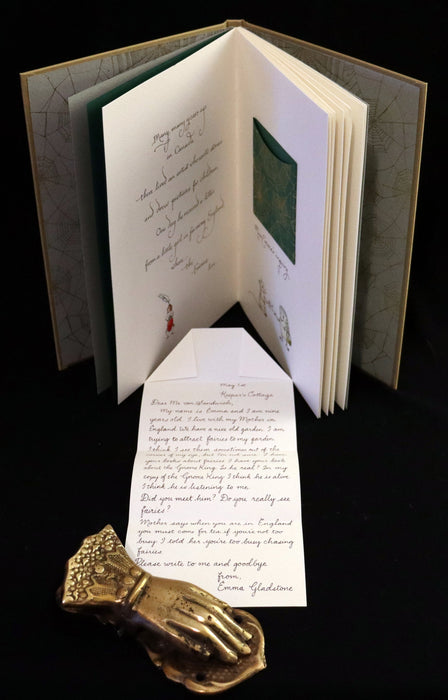 Many many years ago
in Canada
there lived an artist who wrote stories
and drew pictures for children.
One day he received a letter
from a little girl in far away England
where the fairies
live
May 1st
Keeper's Cottage
Dear Mr. van Glandwich,
My name is Emma and I am nine
years old. I live with my Mother in
England. We have a nice old garden. I am
trying to attract fairies to my garden.
I think I see them sometimes out of the
corner of my eye, but I'm not sure. I have
your books about fairies. I have your book
about the Gnome King. Is he real? In my
copy of the Gnome King I think he is alive.
I think he is listening to me.
Did you meet him? Do you really see
fairies?
Mother says when you are in England
you must come for tea if you're not too
busy. I told her you're too busy chasing
fairies.
Please write to me and goodbye
from,
Emma Gladstone